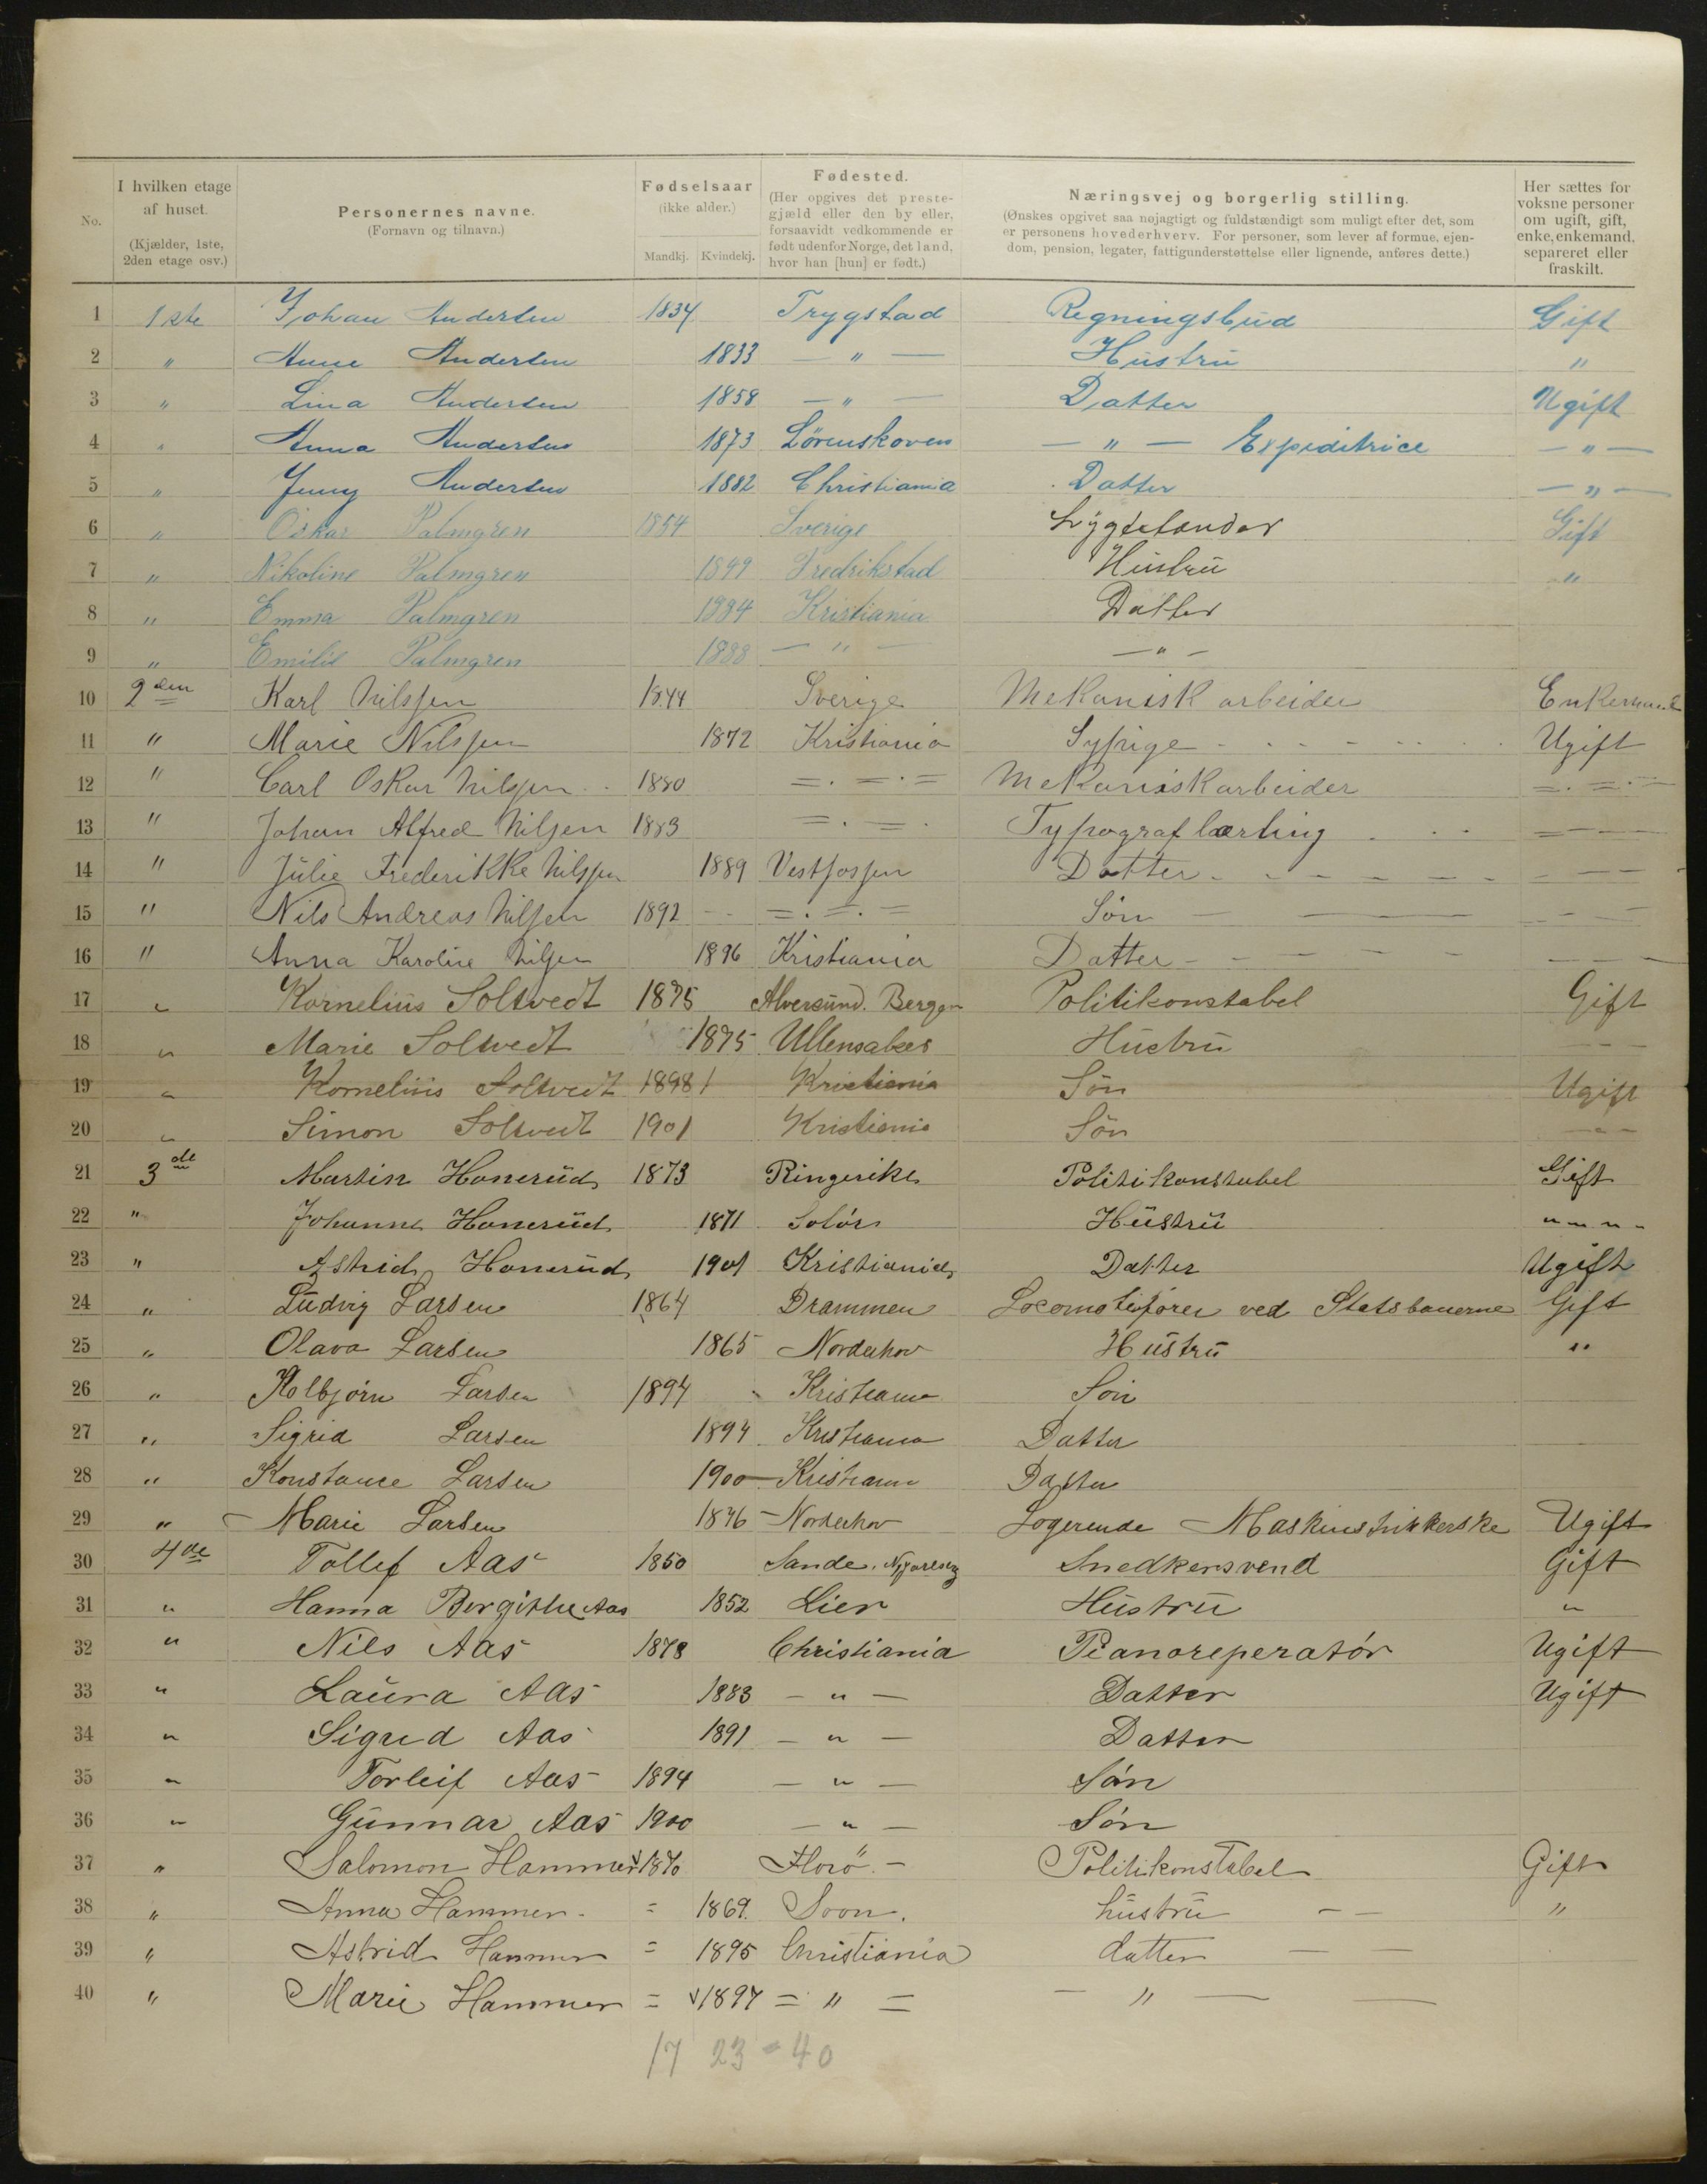 No.
I hvilken etage af huset. (Kjælder, 1ste, 2den etage osv.)
Personernes navne. (Fornavn og tilnavn.)
Fødselsaar (ikke alder.) Mandkj. Kvindekj.
Fødested. (Her opgives det prestegjæld eller den by eller, forsaavidt vedkommende er født udenfor Norge, det land, hvor han [hun] er født.)
Næringsvej og borgerlig stilling. (Ønskes opgivet saa nøjagtigt og fuldstændigt som muligt efter det, som er personens hovederhverv. For personer, som lever af formue, ejendom, pension, legater, fattigunderstøttelse eller lignende, anføres dette.)
Her sættes for voksne personer om ugift, gift, enke, enkemand, separeret eller fraskilt.
1 1ste Johan Andersen 1834 Trygstad Regningsbud Gift
2 " Anne Andersen 1833 — " — Hustru "
3 " Lina Andersen 1858 — " — Datter Ugift
4 " Anna Andersen 1873 Lörenskoven — " — Expeditrice — " —
5 " Jenny Andersen 1882 Christiania Datter — " —
6 " Oskar Palmgren 1854 Sverige Lygtetænder Gift
7 " Nikoline Palmgren 1849 Fredrikstad Hustru "
8 " Emma Palmgren 1884 Kristiania Datter
9 " Emilie Palmgren 1888 — " — — " —
10 2den Karl Nilssen 1844 Sverige Mekanisk arbeider Enkemand
11 " Marie Nilssen 1872 Kristiania Sypige Ugift
12 " Carl Oskar Nilssen 1880 =.=.= Mekaniskarbeider =.=.—
13 " Johan Alfred Nilsen 1883 =.=. Typograf lærling — — —
14 " Julie Frederikke Nilssen 1889 Vestfossen Datter — — —
15 " Nils Andreas Nilsen 1892 =.=.= Sön — — —
16 " Anna Karoline Nilsen 1896 Kristiania Datter — — —
17 " Kornelius Soltvedt 1875 Alversund. Bergen Politikonstabel Gift
18 " Marie Soltvedt 1875 Ullensaker Hustru — — —
19 " Kornelius Soltvedt 1898 Kristiania Sön Ugift
20 " Simon Soltvedt 1901 Kristiania Sön — " —
21 3die Martin Honerud 1873 Ringerike Politikonstabel Gift
22 " Johanne Honerud 1871 Solör Hustru " — " —
23 " Astrid Honerud 1901 Kristiania Datter Ugift
24 " Ludvig Larsen 1864 Drammen Locomotivförer ved Statsbanerne Gift
25 " Olava Larsen 1865 Norderhov Hustru "
26 " Kolbjörn Larsen 1894 Kristiania Sön
27 " Sigrid Larsen 1894 Kristiania Datter
28 " Konstance Larsen 1900 Kristiania Datter
29 " Marie Larsen 1846 Norderhov Logerende Maskinstrikkerske Ugift
30 4de Tollef Aas 1850 Sande. Snedkersvend Gift
31 " Hanna Bergithe Aas 1852 Lier Hustru "
32 " Nils Aas 1878 Christiania Pianoreperatör Ugift
33 " Laura Aas 1883 — " — Datter Ugift
34 " Sigrid Aas 1891 — " — Datter
35 " Torleif Aas 1894 — " — Sön
36 " Gunnar Aas 1900 — " — Sön
37 " Salomon Hammer 1870 Florö. — Politikonstabel Gift
38 " Anna Hammer = 1869. Soon. hustru — — "
39 " Astrid Hammer = 1895 Christiania datter — —
40 " Marie Hammer = 1897 = " = — " — —
17 23 = 40